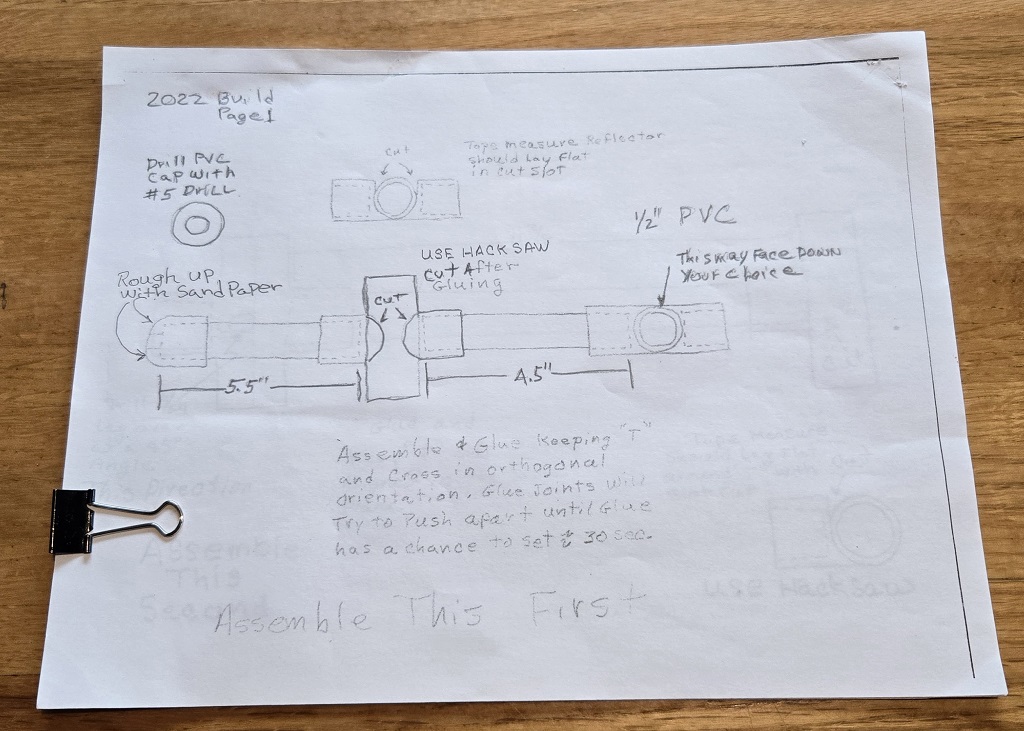 2022 Build
Page 1
Drill PVC
Cap with
#5 DRILL
cut
Tape measure Reflector
should Lay Flat
in cut Slot
1/2" PVC
This may Face DOWN
Your Choice
USE HACK SAW
Cut After
Gluing
Rough up
with SandPaper
cut
5.5"
4.5"
Assemble & Glue Keeping "T"
and Cross in orthogonal
orientation. Glue Joints Will
Try to Push apart until Glue
has a chance to set 30 sec.
Assemble This First
Assemble
This
Second
USE HackSaw